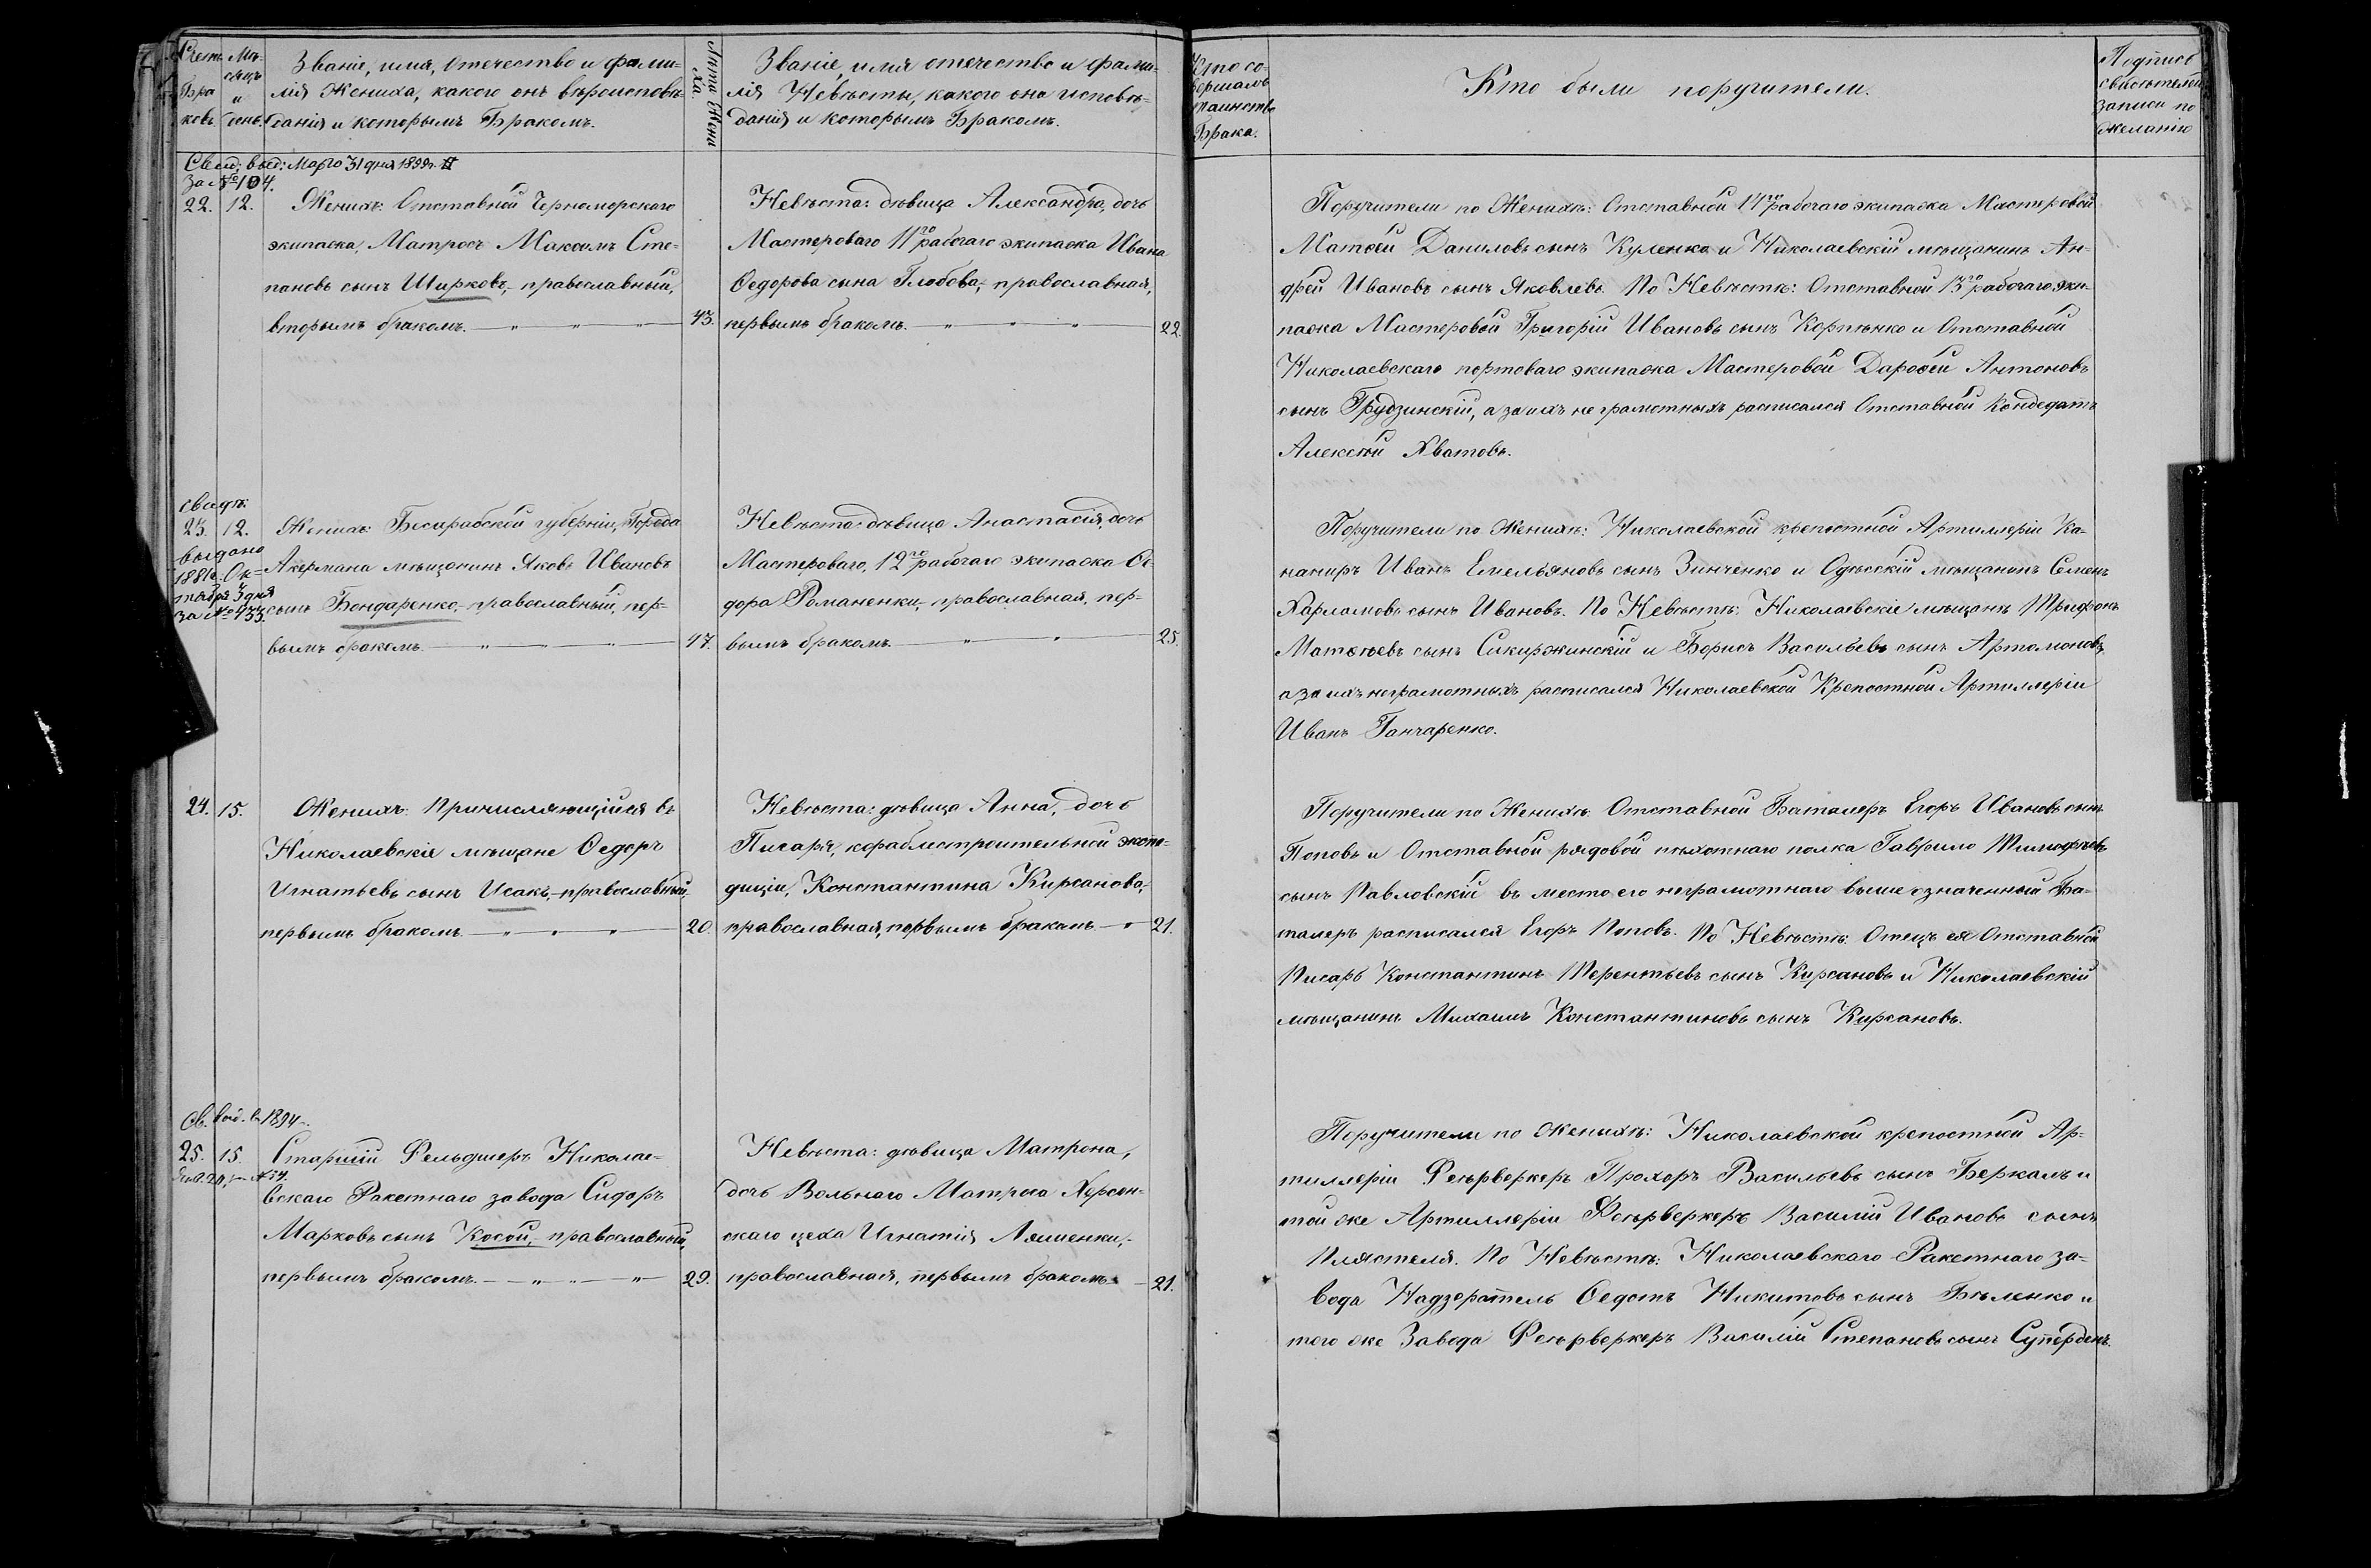 Счетъ
Бра
ковъ
Мѣ-
сяцъ
и
день.
Званіе, имя, отечество и фами-
лія Жениха, какого онъ вѣроисповѣ-
данія и которымъ Бракомъ.
Лѣта Жени
ха.
Званіе, имя отечество и фами-
лія Невѣсты, какого она исповѣ-
данія и которымъ Бракомъ.
Кто со-
вершалъ
таинство
Брака.
Кто были поручители.
Подпись
свидѣтелей
записи по
желанію
Свид: выд: Марта 31 дня 1899г.
за № 104.
22. 12.
Женихъ: Отставной Черноморскаго
экипажа, Матросъ Максимъ Сте-
пановъ сынъ Ширковъ,- православный,
вторымъ бракомъ. 43.
Невѣста: дѣвица Александра, дочь
Мастероваго 11го рабочаго экипажа Ивана
Ѳедорова сына Глобова,- православная,
первымъ бракомъ. 22.
Поручители по Женихѣ: Отставной 14го рабочаго экипажа Мастеровой
Матѳей Даниловъ сынъ Куленко и Николаевскій мѣщанинъ Ан-
дрей Ивановъ сынъ Яковлевъ. По Невѣстѣ: Отставной 13го рабочаго эки-
пажа Мастеровой Григорій Ивановъ сынъ Корпѣнко и Отставной
Николаевскаго портоваго экипажа Мастеровой Дароѳей Антоновъ
сынъ Грудзинскій, а за ихъ не грамотныхъ росписался Отставной Кондедатъ
Алексѣй Хватовъ.
свидѣ:
23. 12.
выдано
1881г. Ок=
тября 3 дня
за № 433.
Женихъ: Бесарабской губерніи, Города
Акермана мѣщанинъ Яковъ Ивановъ
сынъ Бондаренко,- православный, пер-
вымъ бракомъ. 47.
Невѣста: дѣвица Анастасія, дочь
Мастероваго, 12го рабочаго экипажа Ѳе-
дора Романенки,- православная, пер-
вымъ бракомъ. 25.
Поручители по Женихѣ: Николаевской крѣпостной Артиллеріи Ка-
нониръ Иванъ Емельяновъ сынъ Зинченко и Одѣсскій мѣщанинъ Семенъ
Харламовъ сынъ Ивановъ. По Невѣстѣ: Николаевскіе мѣщанѣ Трифонъ
Матѳѣевъ сынъ Сикиржинскій и Борисъ Васильевъ сынъ Артомоновъ,
а за ихъ неграмотныхъ расписался Николаевской Крепостной Артиллеріи
Иванъ Ганчаренко.
24. 15.
Женихъ: Причисляющійся въ
Николаевскіе мѣщане Ѳедоръ
Игнатьевъ сынъ Исакъ,- православный,
первымъ бракомъ 20.
Невѣста: дѣвица Анна, дочь
Писаря, кораблестроительной экспе-
диціи, Константина Кирсанова,-
православная, первымъ бракомъ 21.
Поручители по Женихѣ: Отставной Баталеръ Егоръ Ивановъ сынъ
Поповъ и Отставной рядовой пѣхотнаго полка Гаврило Тимофѣевъ
сынъ Павловскій въ место его неграмотнаго выше означенный Ба-
талеръ расписался Егоръ Поповъ. По Невѣстѣ: Отецъ ея Отставной
Писарь Константинъ Терентьевъ сынъ Кирсановъ и Николаевскій
мѣщанинъ Михаилъ Константиновъ сынъ Кирсановъ.
Св. выд. въ 1894г.
25. 15.
Старшій Фельдшеръ Николае-
вскаго Ракетнаго завода Сидоръ
Марковъ сынъ Косой,- православный,
первымъ бракомъ. 29.
Невѣста: дѣвица Матрона,
дочь Вольнаго Матроса Херсон-
скаго цеха Игнатія Ляшенки,-
православная, первымъ бракомъ 21.
Поручители по Женихѣ: Николаевской крепостной Ар-
тиллеріи Феѣрверкеръ Прохоръ Васильевъ сынъ Беркалъ и
той же Артиллеріи Феѣрверкеръ Василій Ивановъ сынъ
Плястеля. По Невѣстѣ: Николаевскаго Ракетнаго за-
вода Надзератель Ѳедотъ Никитовъ сынъ Бѣленко и
того же Завода Феѣрверкеръ Василій Степановъ сынъ